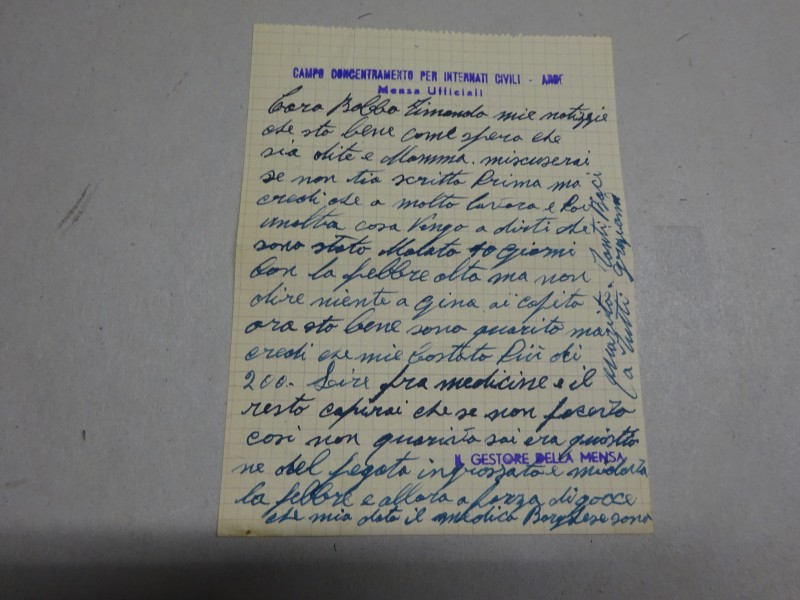 CAMPO CONCENTRAMENTO PER INTERNATI CIVILI - ARBE
Mensa Ufficiali
Caro Babbo Timando mie notizzie
che sto bene come spera che
sia dite e Mamma. miscuserai
se non tia scritto Prima ma
credi che a molto lavoro e Poi
unaltra cosa Vengo a dirti che
sono stato Malato 10 giorni
Con la febbre alta ma non
dire niente a Gina ai capito
ora sto bene sono guarito ma
credi che mie Costato Più di
200. Leire fra medicine e il
resto capirai che se non facevo
cosi non guarivo sai era questio
IL GESTORE DELLA MENSA
ne del fegato ingrossato e mi dava
la febbre e allora a forza di gocce
che mia dato il medico Borghese sono
guarito. Tanti Baci
a tutti